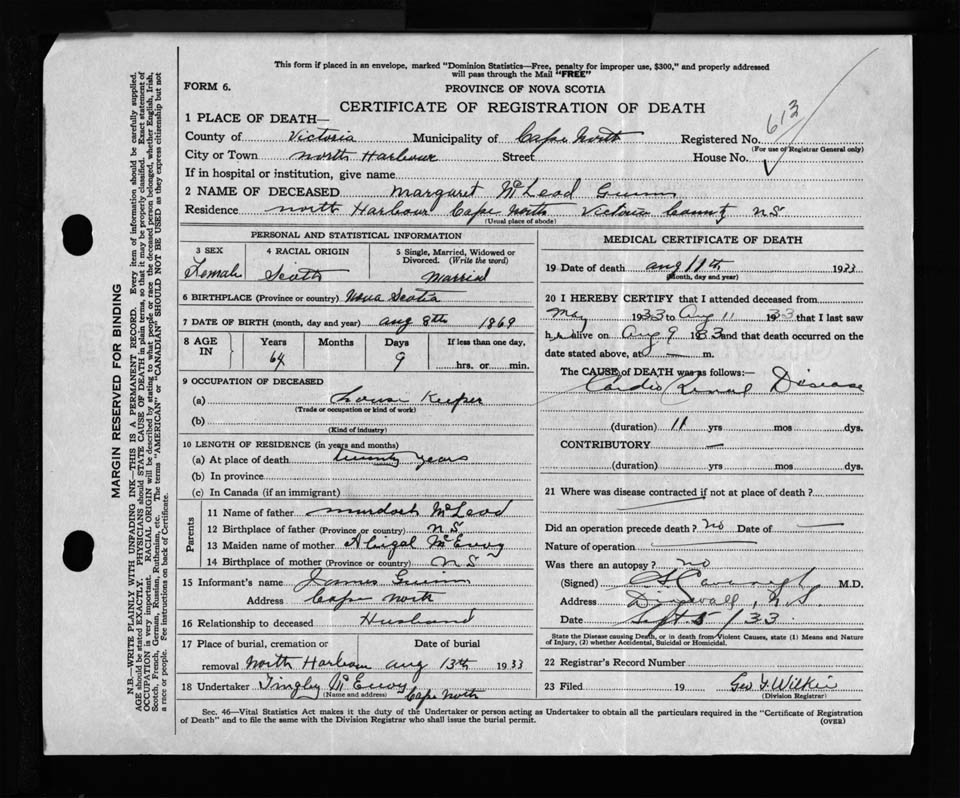 This form if placed in an envelope, marked "Dominion Statistics—Free, penalty for improper use, $300," and properly addressed
will pass through the Mail "FREE"
FORM 6.
PROVINCE OF NOVA SCOTIA
CERTIFICATE OF REGISTRATION OF DEATH
613
1 PLACE OF DEATH—
County of Victoria Municipality of Cape North Registered No.
(For use of Registrar General only)
City or Town North Harbour Street House No.
If in hospital or institution, give name
2 NAME OF DECEASED Margaret McLeod Gwinn
Residence North Harbour Cape North Victoria County N.S.
(Usual place of abode)
PERSONAL AND STATISTICAL INFORMATION
3 SEX 4 RACIAL ORIGIN 5 Single, Married, Widowed or
Divorced. (Write the word)
Female Scotch Married
6 BIRTHPLACE (Province or country) Nova Scotia
7 DATE OF BIRTH (month, day and year) Aug 8th 1869
8 AGE IN Years Months Days If less than one day,
64 9 hrs. or min.
9 OCCUPATION OF DECEASED
(a) House Keeper
(Trade or occupation or kind of work)
(b)
(Kind of industry)
10 LENGTH OF RESIDENCE (in years and months)
(a) At place of death twenty years
(b) In province
(c) In Canada (if an immigrant)
Parents
11 Name of father Murdoch McLeod
12 Birthplace of father (Province or country) N.S.
13 Maiden name of mother Abigal McEvoy
14 Birthplace of mother (Province or country) N.S.
15 Informant's name James Gwinn
Address Cape North
16 Relationship to deceased Husband
17 Place of burial, cremation or Date of burial
removal North Harbour Aug 13th 1933
18 Undertaker Tingley McEvoy
(Name and address) Cape North
MEDICAL CERTIFICATE OF DEATH
19 Date of death Aug 11th 1933
(Month, day and year)
20 I HEREBY CERTIFY that I attended deceased from
May 1933 to Aug 11 1933 that I last saw
her alive on Aug 9 1933 and that death occurred on the
date stated above, at — m.
The CAUSE of DEATH was as follows:—
Cardio Renal Disease
(duration) 11 yrs. mos. dys.
CONTRIBUTORY —
(duration) yrs. mos. dys.
21 Where was disease contracted if not at place of death?
Did an operation precede death? No Date of —
Nature of operation —
Was there an autopsy? No
(Signed) Cavanagh M.D.
Address Dingwall, N.S.
Date Sept 5/33.
State the Disease causing Death, or in death from Violent Causes, state (1) Means and Nature
of Injury, (2) whether Accidental, Suicidal or Homicidal.
22 Registrar's Record Number
23 Filed 19 Geo Wilkie
(Division Registrar)
Sec. 46—Vital Statistics Act makes it the duty of the Undertaker or person acting as Undertaker to obtain all the particulars required in the "Certificate of Registration
of Death" and to file the same with the Division Registrar who shall issue the burial permit.
(OVER)
MARGIN RESERVED FOR BINDING
N.B.—WRITE PLAINLY WITH UNFADING INK—THIS IS A PERMANENT RECORD. Every item of information should be carefully supplied.
AGE should be stated EXACTLY. PHYSICIANS should STATE CAUSE OF DEATH in plain terms, so that it may be properly classified. Exact statement of
OCCUPATION is very important. RACIAL ORIGIN will be described by stating to what people or race the deceased person belonged, whether English, Irish,
Scotch, French, German, Russian, Ruthenian, etc. The terms "AMERICAN" or "CANADIAN" SHOULD NOT BE USED as they express citizenship but not
a race or people. See instructions on back of Certificate.